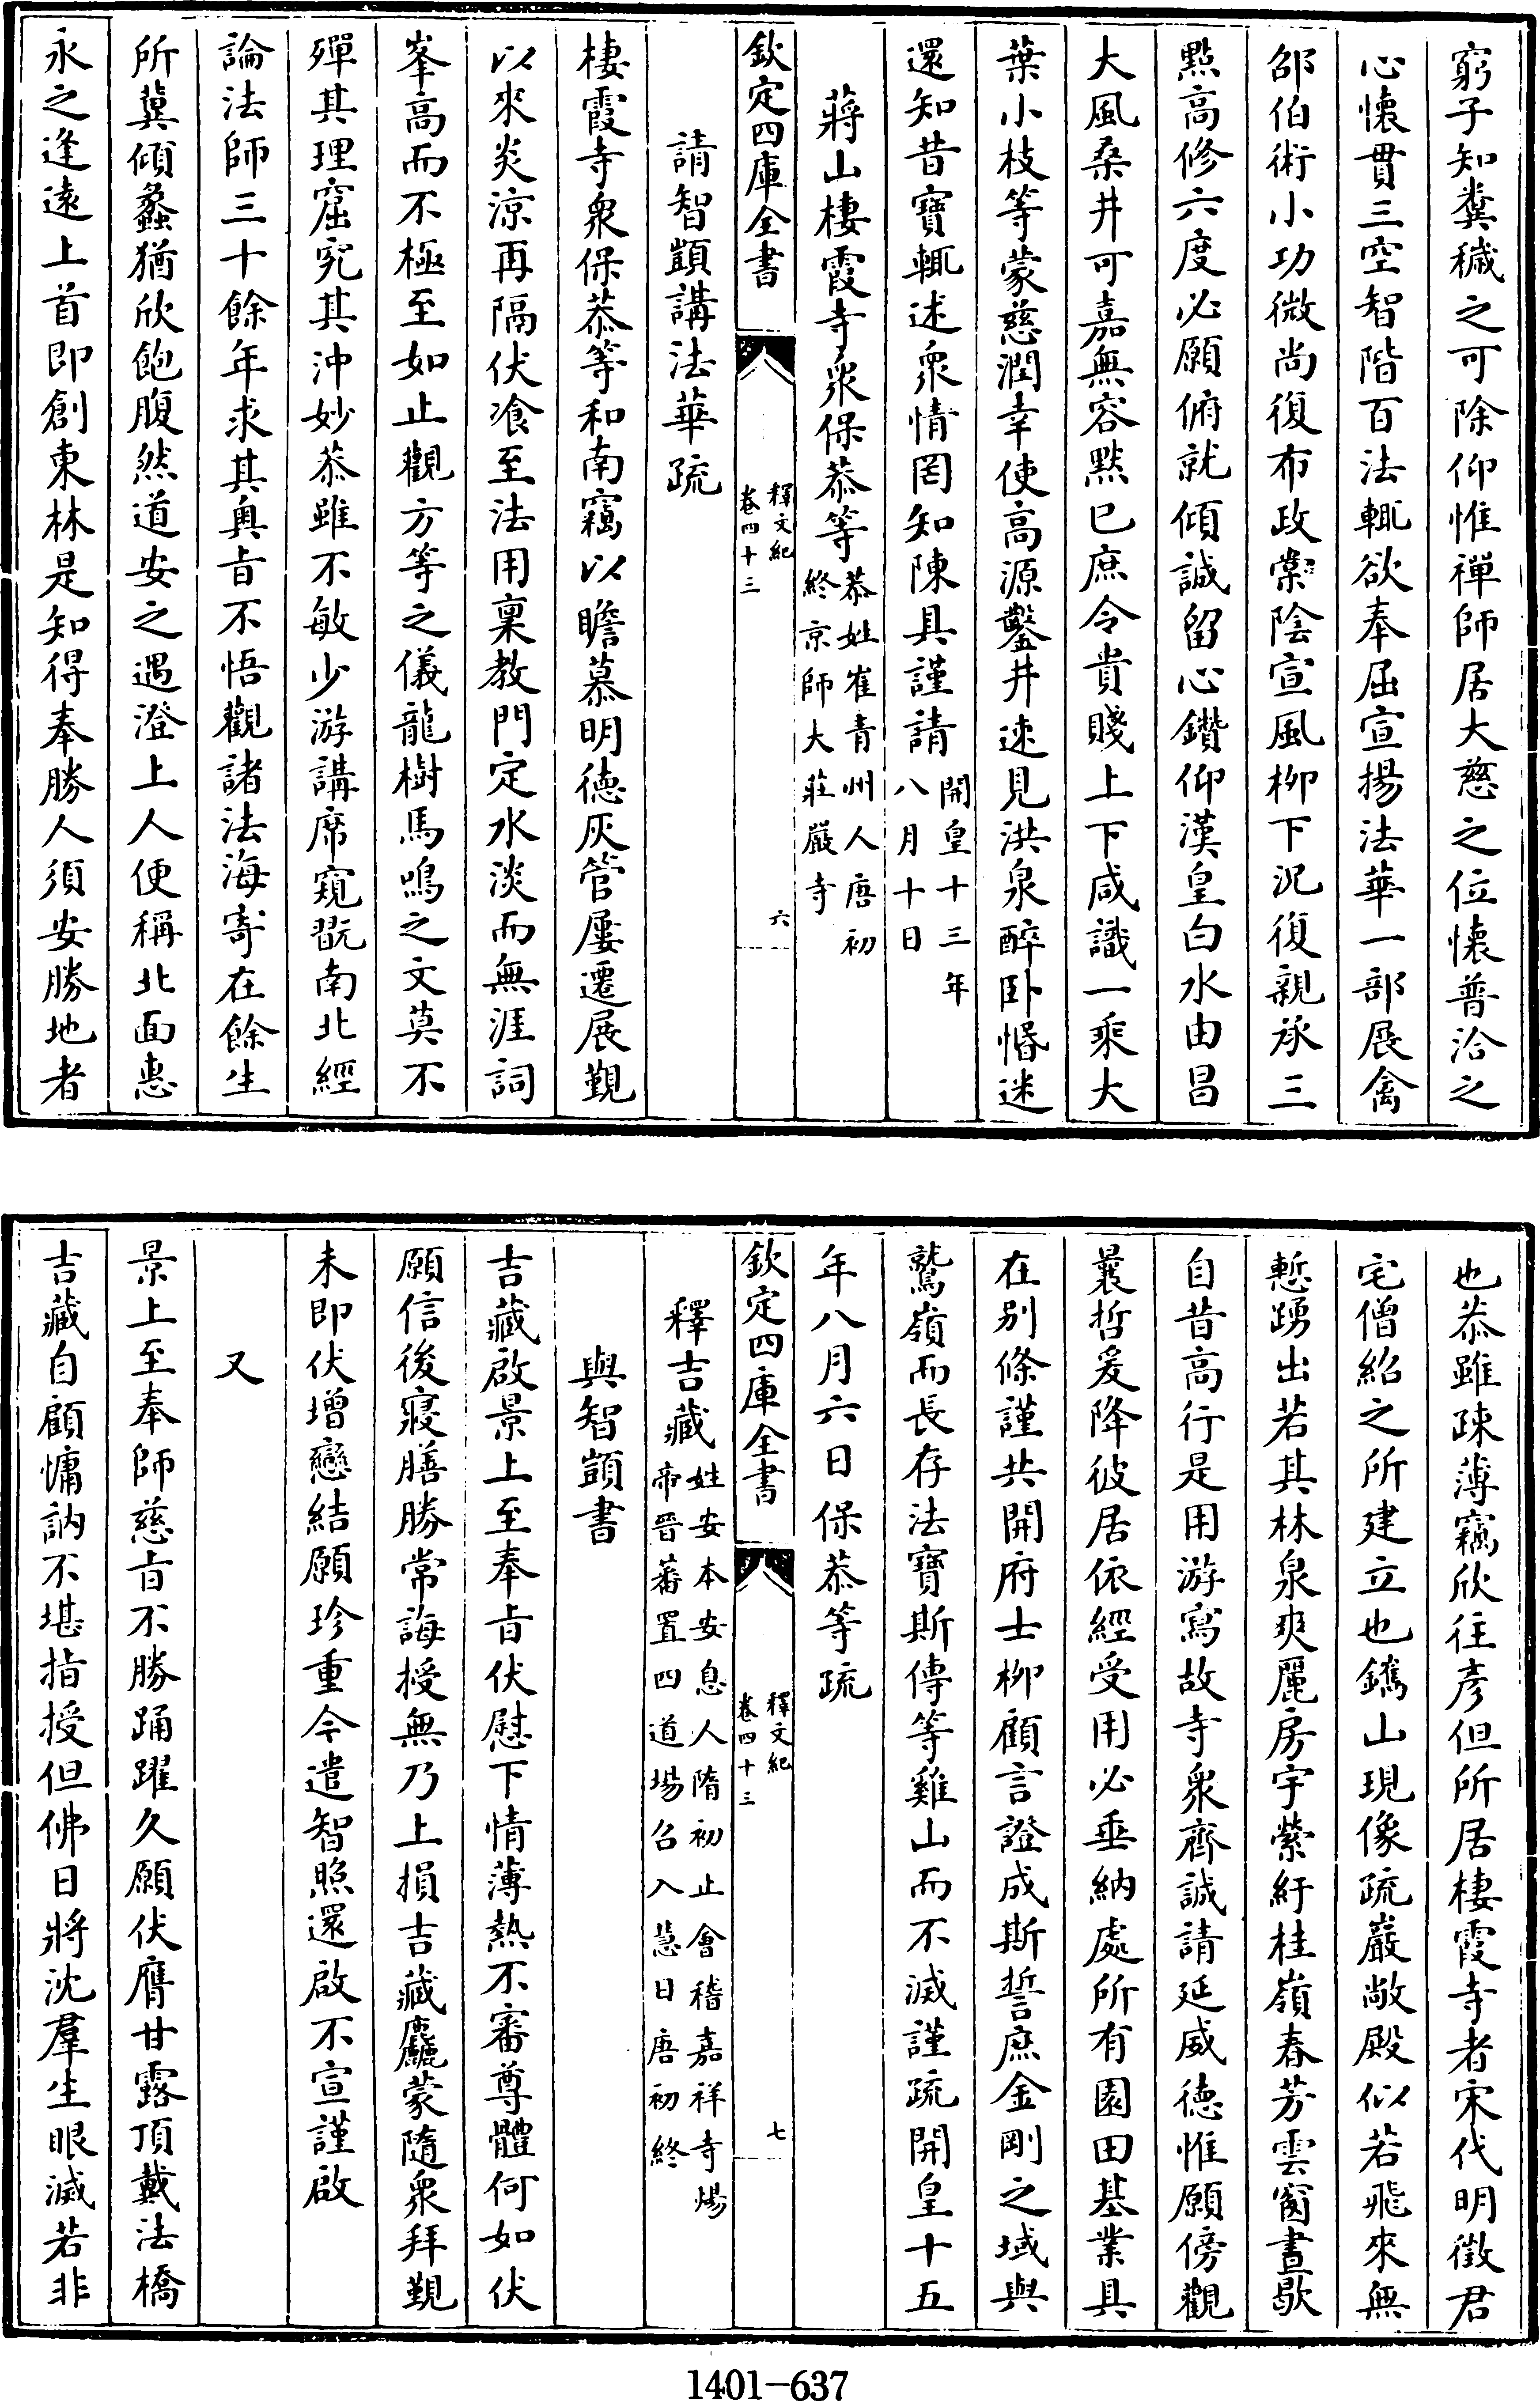 窮子知糞穢之可除仰惟禪師居大慈之位懷普洽之
心懷貫三空智階百法輒欲奉屈宣揚法華一部展禽
邵伯術小功微尚復布政棠陰宣風柳下況復親承三
點高修六度必願俯就傾誠留心鑽仰漢皇白水由昌
大風桑井可嘉無容黙已庶令貴賤上下咸識一乘大
葉小枝等蒙慈潤幸使高源鑿井速見洪泉醉卧惛迷
還知昔寶輒述衆情罔知陳具謹請開皇十三年八月十日
蔣山棲霞寺衆保恭等恭姓崔青州人唐初終京師大莊嚴寺
欽定四庫全書
釋文紀
卷四十三
六
請智顗講法華疏
棲霞寺衆保恭等和南竊以瞻慕明德灰管屢遷展覲
以來炎涼再隔伏飡至法用稟教門定水淡而無涯詞
峯高而不極至如止觀方等之儀龍樹馬鳴之文莫不
殫其理窟究其沖妙恭雖不敏少游講席窺翫南北經
論法師三十餘年求其奧旨不悟觀諸法海寄在餘生
所冀傾蠡猶欣飽腹然道安之遇澄上人便稱北面惠
永之逢遠上首即創東林是知得奉勝人須安勝地者
也恭雖疎薄竊欣往彥但所居棲霞寺者宋代明徵君
宅僧紹之所建立也鐫山現像疏巖敞殿似若飛來無
慙踴出若其林泉爽麗房宇縈紆桂嶺春芳雲窗晝歇
自昔高行是用游寫故寺衆齊誠請延威德惟願傍觀
曩哲爰降彼居依經受用必垂納處所有園田基業具
在别條謹共開府士柳顧言證成斯誓庶金剛之域與
鷲嶺而長存法寶斯傳等雞山而不滅謹疏開皇十五
年八月六日保恭等疏
欽定四庫全書
釋文紀
卷四十三
七
釋吉藏姓安本安息人隋初止會稽嘉祥寺煬帝晉蕃置四道場召入慧日唐初終
與智顗書
吉藏啟景上至奉旨伏慰下情薄熱不審尊體何如伏
願信後寢膳勝常誨授無乃上損吉藏麤蒙隨衆拜覲
未即伏增戀結願珍重今遣智照還啟不宣謹啟
又
景上至奉師慈旨不勝踊躍久願伏膺甘露頂戴法橋
吉藏自顧慵訥不堪指授但佛日將沈羣生眼滅若非
1401-637